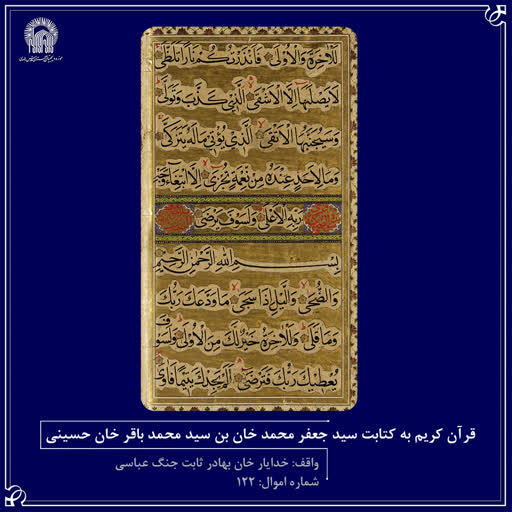 لَلْآخِرَةَ وَالْأُولَىٰ فَأَنْذَرْتُكُمْ نَارًا تَلَظَّىٰ
لَا يَصْلَىٰهَا إِلَّا الْأَشْقَىٰ الَّذِي كَذَّبَ وَتَوَلَّىٰ
وَسَيُجَنَّبُهَا الْأَتْقَىٰ الَّذِي يُؤْتِي مَالَهُ يَتَزَكَّىٰ
وَمَا لِأَحَدٍ عِنْدَهُ مِنْ نِعْمَةٍ تُجْزَىٰ إِلَّا ابْتِغَاءَ وَجْهِ
رَبِّهِ الْأَعْلَىٰ وَلَسَوْفَ يَرْضَىٰ
بِسْمِ اللَّهِ الرَّحْمَٰنِ الرَّحِيمِ
وَالضُّحَىٰ وَاللَّيْلِ إِذَا سَجَىٰ مَا وَدَّعَكَ رَبُّكَ
وَمَا قَلَىٰ وَلَلْآخِرَةُ خَيْرٌ لَكَ مِنَ الْأُولَىٰ وَلَسَوْفَ
يُعْطِيكَ رَبُّكَ فَتَرْضَىٰ أَلَمْ يَجِدْكَ يَتِيمًا فَآوَىٰ
قرآن کریم به کتابت سید جعفر محمد خان بن سید محمد باقر خان حسینی
واقف: خدایار خان بهادر ثابت جنگ عباسی
شماره اموال: ۱۲۲